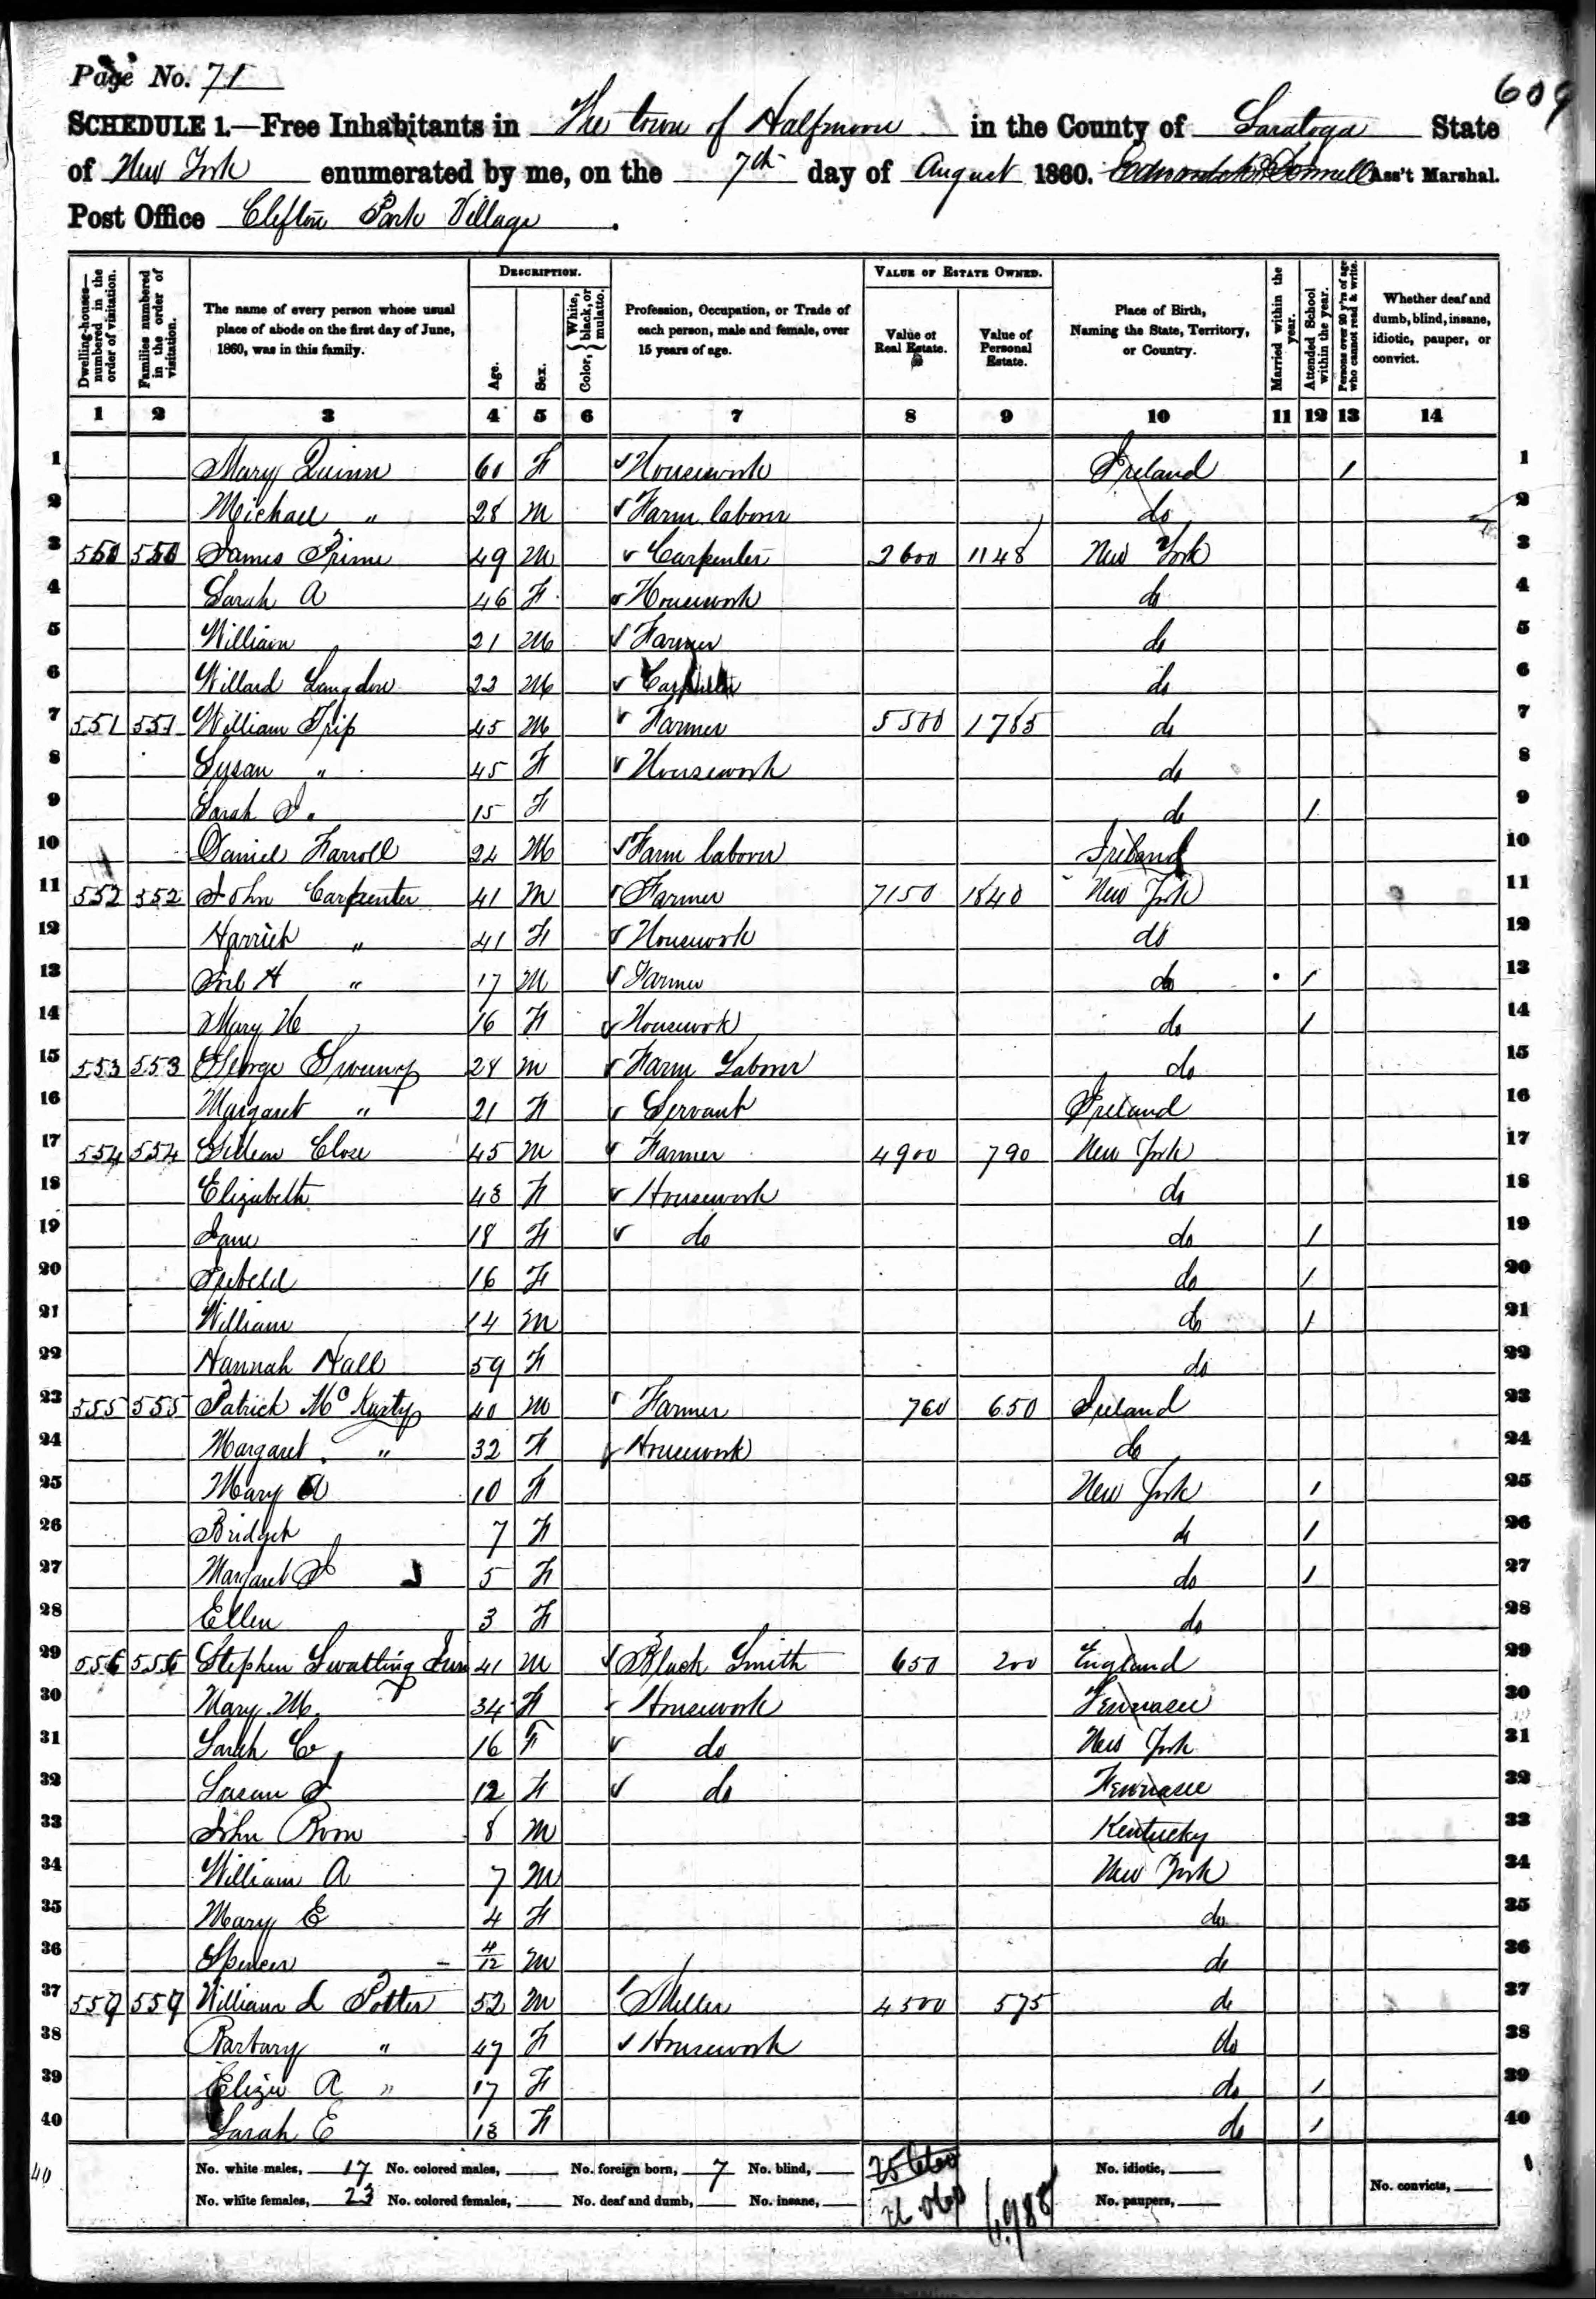 Page No. 71
609
SCHEDULE 1.—Free Inhabitants in The town of Halfmoon in the County of Saratoga State
of New York enumerated by me, on the 7th day of August 1860. Ass't Marshal.
Post Office Clifton Park Village.
Dwelling-houses—numbered in the order of visitation. Families numbered in the order of visitation. The name of every person whose usual place of abode on the first day of June, 1860, was in this family. DESCRIPTION. Age. Sex. Color, { White, black, or mulatto. Profession, Occupation, or Trade of each person, male and female, over 15 years of age. VALUE OF ESTATE OWNED. Value of Real Estate. Value of Personal Estate. Place of Birth, Naming the State, Territory, or Country. Married within the year. Attended School within the year. Persons over 20 y'rs of age who cannot read & write. Whether deaf and dumb, blind, insane, idiotic, pauper, or convict.
1 2 3 4 5 6 7 8 9 10 11 12 13 14
1 Mary Quinn 60 F Housework Ireland / 1
2 Michael " 28 M Farm laborer do 2
3 550 550 James Prime 49 M Carpenter 2600 1148 New York 3
4 Sarah A 46 F Housework do 4
5 William 21 M Farmer do 5
6 Willard Langdon 22 M Carpenter do 6
7 551 551 William Trip 45 M Farmer 5500 1785 do 7
8 Susan " 45 F Housework do 8
9 Sarah J. 15 F do / 9
10 Daniel Farroll 24 M Farm laborer Ireland 10
11 552 552 John Carpenter 41 M Farmer 7150 1840 New York 11
12 Harriet " 41 F Housework do 12
13 H " 17 M Farmer do / 13
14 Mary 16 F Housework do / 14
15 553 553 George Sweeny 28 M Farm Laborer do 15
16 Margaret " 21 F Servant Ireland 16
17 554 554 Gideon Close 45 M Farmer 4900 790 New York 17
18 Elizabeth 43 F Housework do 18
19 Jane 18 F do do / 19
20 16 F do / 20
21 William 14 M do / 21
22 Hannah Hall 59 F do 22
23 555 555 Patrick Mc Karty 40 M Farmer 760 650 Ireland 23
24 Margaret " 32 F Housework do 24
25 Mary A 10 F New York / 25
26 Bridget 7 F do / 26
27 Margaret J 5 F do / 27
28 Ellen 3 F do 28
29 556 556 Stephen Swatling Jun 41 M Black Smith 650 200 England 29
30 Mary. M. 34 F Housework Tennasee 30
31 Sarah C 16 F do New York 31
32 Susan J 12 F do Tennasee 32
33 John 8 M Kentucky 33
34 William A 7 M New York 34
35 Mary E 4 F do 35
36 Spencer 4/12 M do 36
37 557 557 William L Potter 52 M Miller 4500 575 do 37
38 Barbary " 47 F Housework do 38
39 Eliza A " 17 F do / 39
40 Sarah E 13 F do / 40
40 No. white males, 17 No. colored males, No. foreign born, 7 No. blind, No. idiotic,
No. white females, 23 No. colored females, No. deaf and dumb, No. insane, 26.060 6.988 No. paupers, No. convicts,